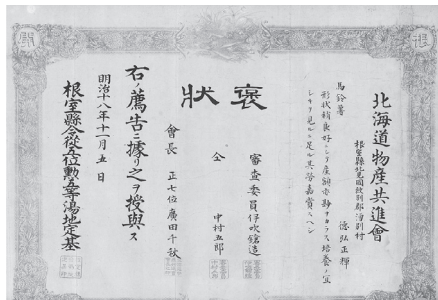 北海道物産共進會
根室縣北見國紋別郡湧別村
徳弘正輝
馬鈴薯
形状稍良好ニシテ産額亦尠カラス培養ノ宜
シキヲ見ルニ足ル其労嘉賞スヘシ
褒狀
審査委員伊吹鎗造
仝 中村五郎
會長 正七位廣田千秋
右ノ薦告ニ據リ之ヲ授與ス
明治十八年十一月五日
根室縣令從五位勲五等湯地定基